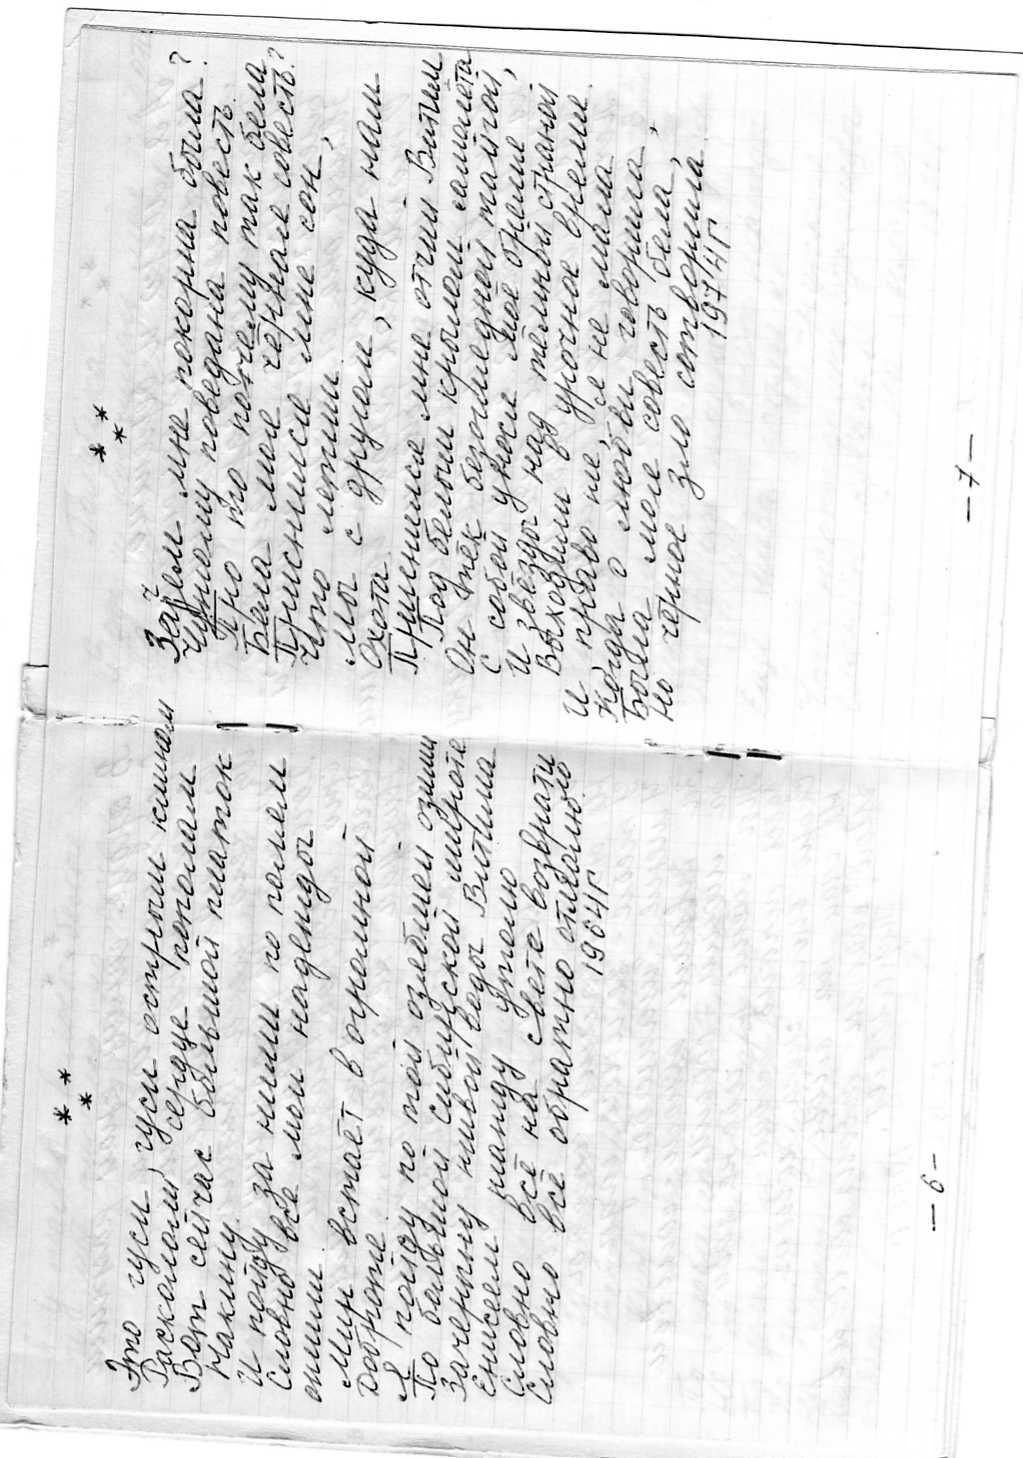 * *
*
Это гуси, гуси острым клином
Раскололи сердце пополам
Вот сейчас большой платок
Накину
И пойду за ними по полям
Словно все мои надежды
ними
Мир встаёт в огромной
Доброте
Я пойду по той озябшей озими
По большой сибирской широте
Зачерпну живой воды Витима
Енисеем жажду утолю
Словно всё на свете возвратимо
Словно всё обратно отмолю.
1964г
— 6 —
* *
*
Зачем мне покорна была?
Чужому поведана повесть
Про то почему так бела
Бела моя чёрная совесть?
Приснился мне сон,
Что летим
Мы с другом, куда нам
Охота
Приснился мне отчий Витим
Под белым крылом самолёта
Он тёк безоглядной тайгой,
С собой унося моё бремя
И звёзды над тёмной страной
Выходили в урочное время.
И право не, я не лгала
Когда о любви говорила
Была моя совесть бела,
Но чёрное зло сотворила,
1974г
— 7 —